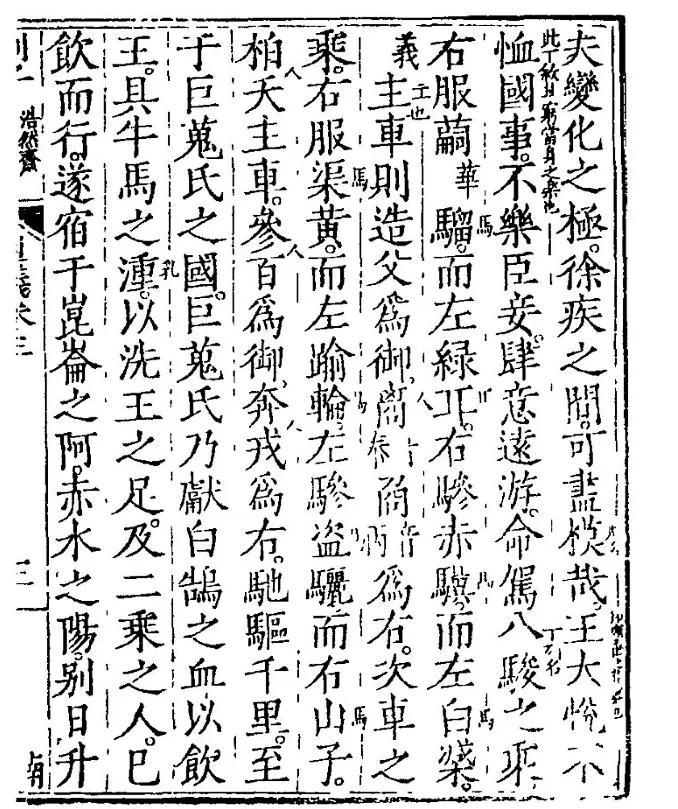 夫變化之極。徐疾之間。可盡模哉。王大悅不
恤國事。不樂臣妾。肆意遠游。命駕八駿之乘
右服華騮。而左緑耳。右驂赤驥。而左白
義
主車則造父爲御。爲右。次車之
乘。右服渠黃。而左踰輪。左驂盜驪。而右山子。
柏夭主車。參百爲御。奔戎爲右。馳驅千里。至
于巨蒐氏之國。巨蒐氏乃獻白鵠之血以飲
王。具牛馬之湩。以洗王之足。及二乘之人。已
飲而行。遂宿于崑崙之阿。赤水之陽。別日升
浩然齋